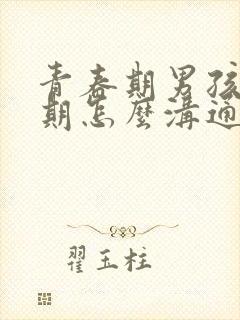 青春期男孩
期怎麼溝通
翟玉柱